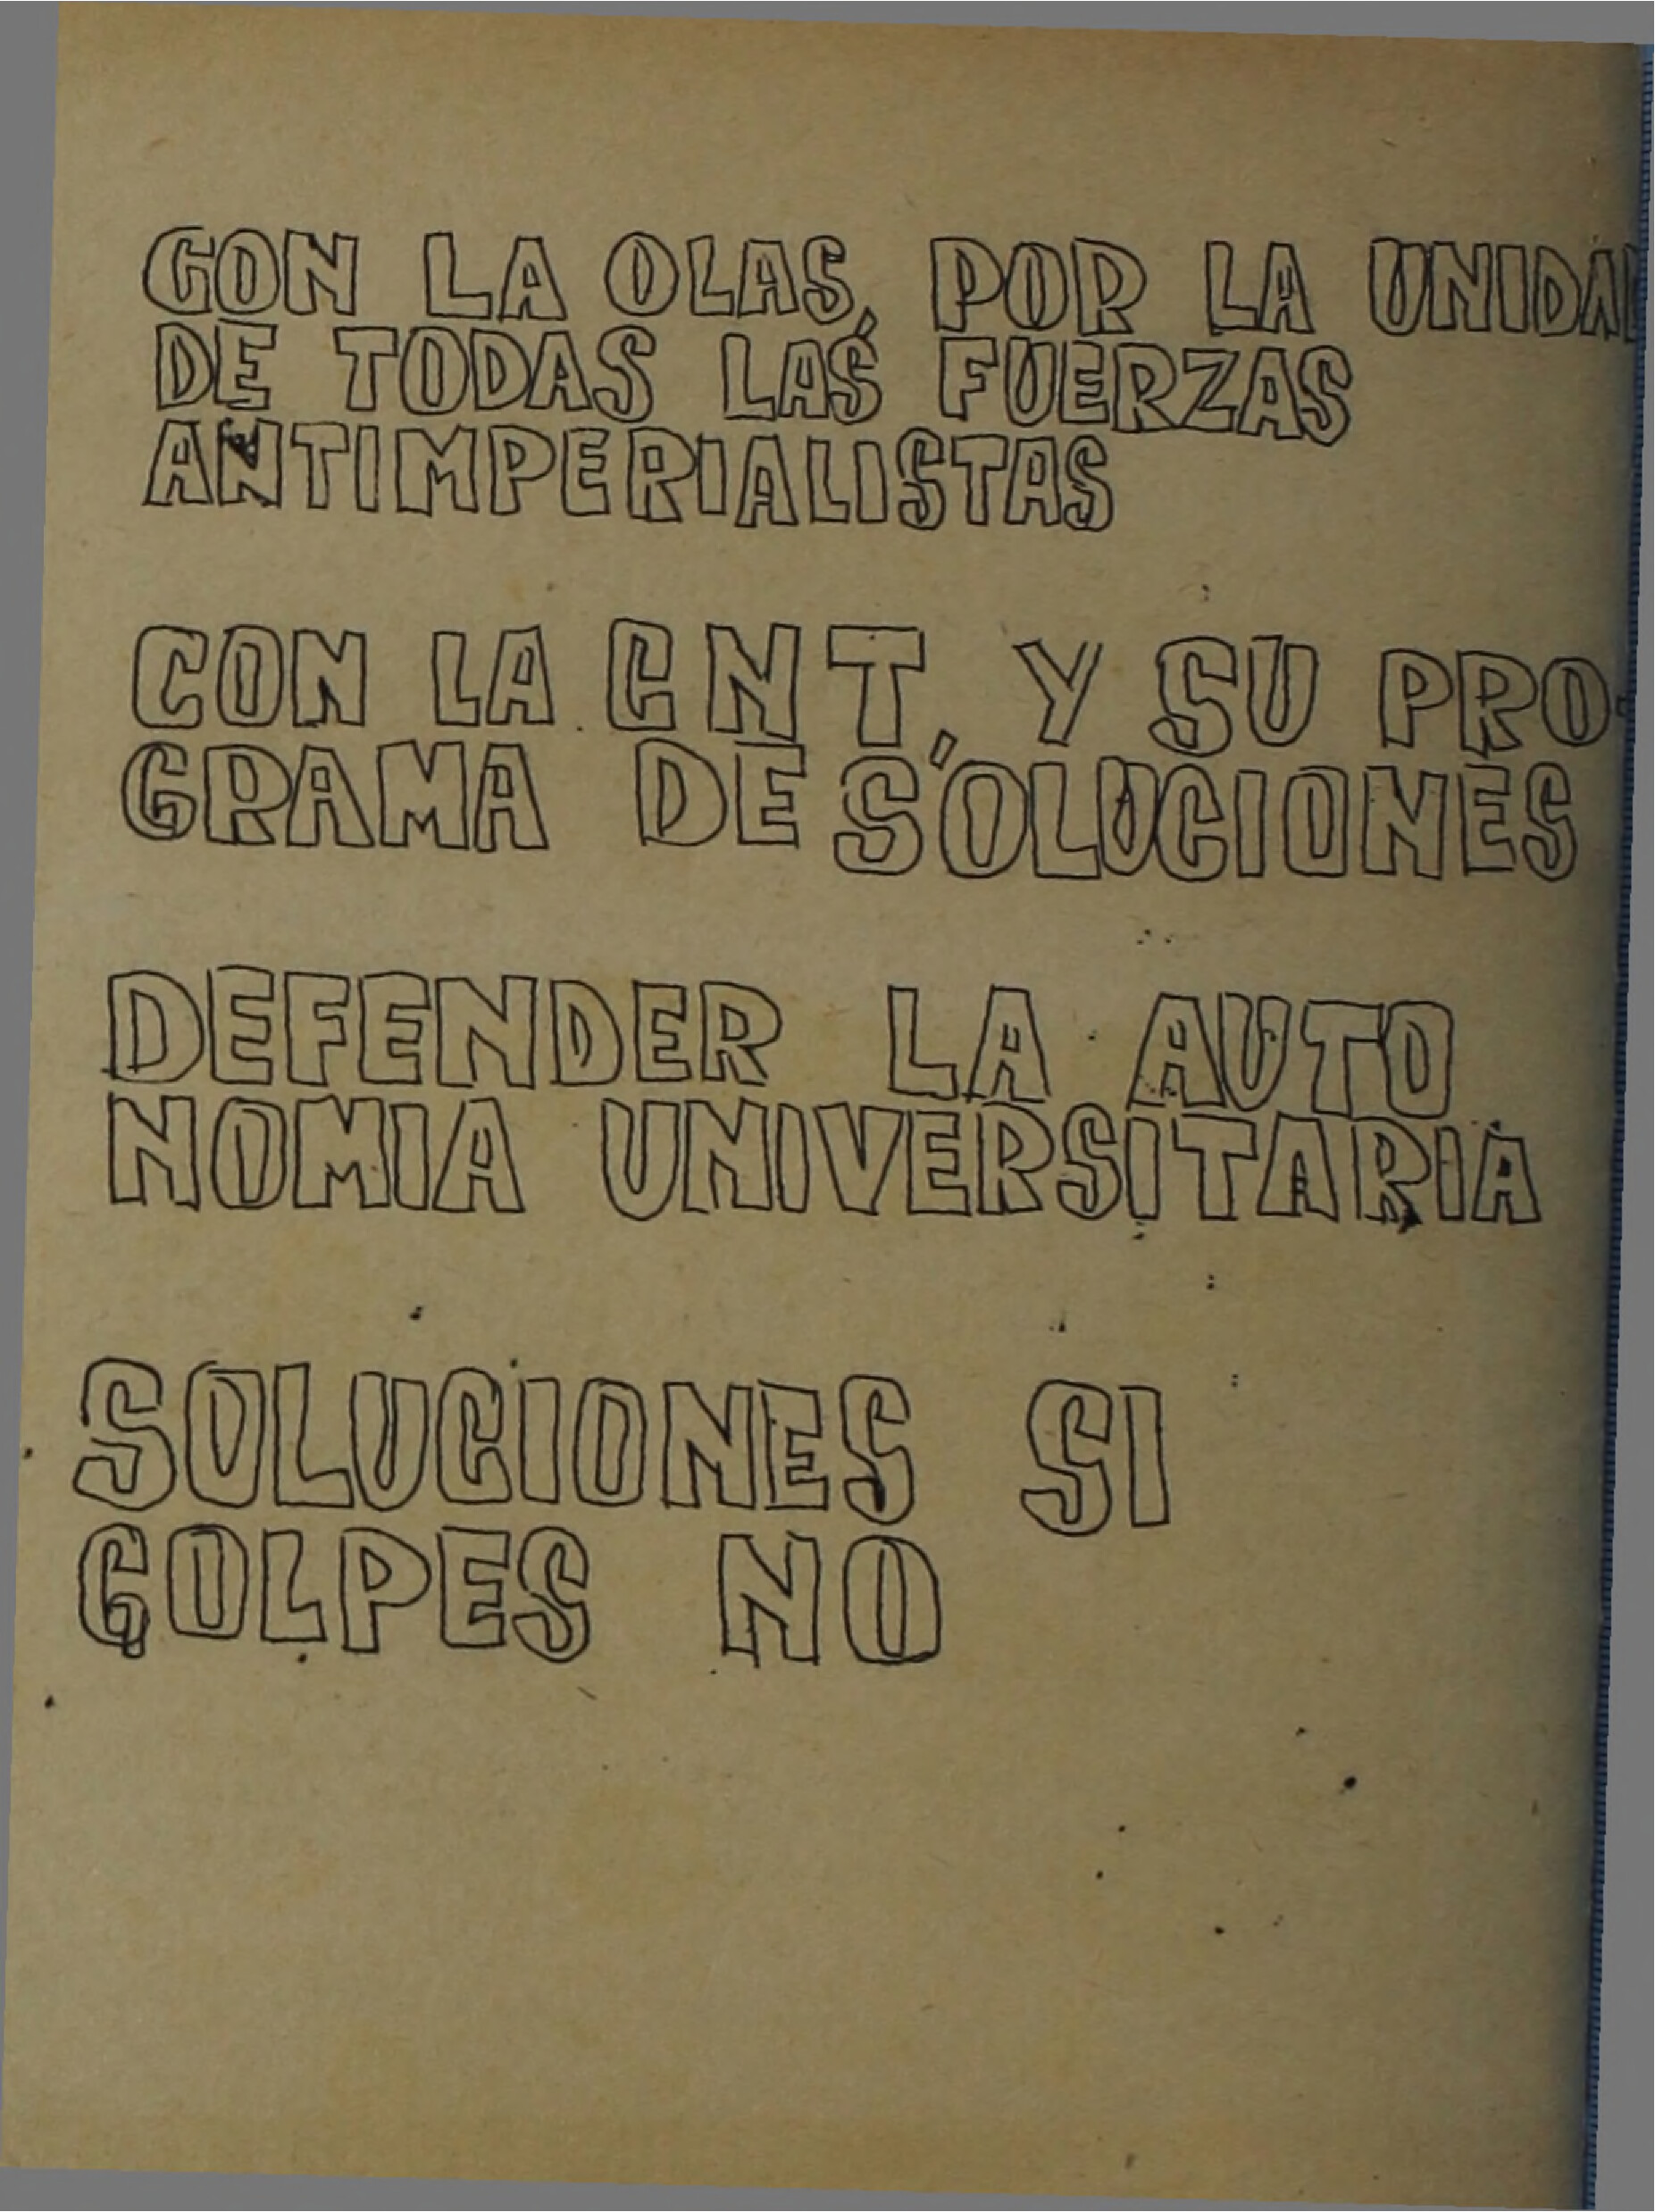 CON LA OLAS, POR LA UNIDAD
DE TODAS LAS FUERZAS
ANTIMPERIALISTAS
CON LA CNT, Y SU PRO-
GRAMA DE SOLUCIONES
DEFENDER LA AUTO
NOMIA UNIVERSITARIA
SOLUCIONES SI
GOLPES NO